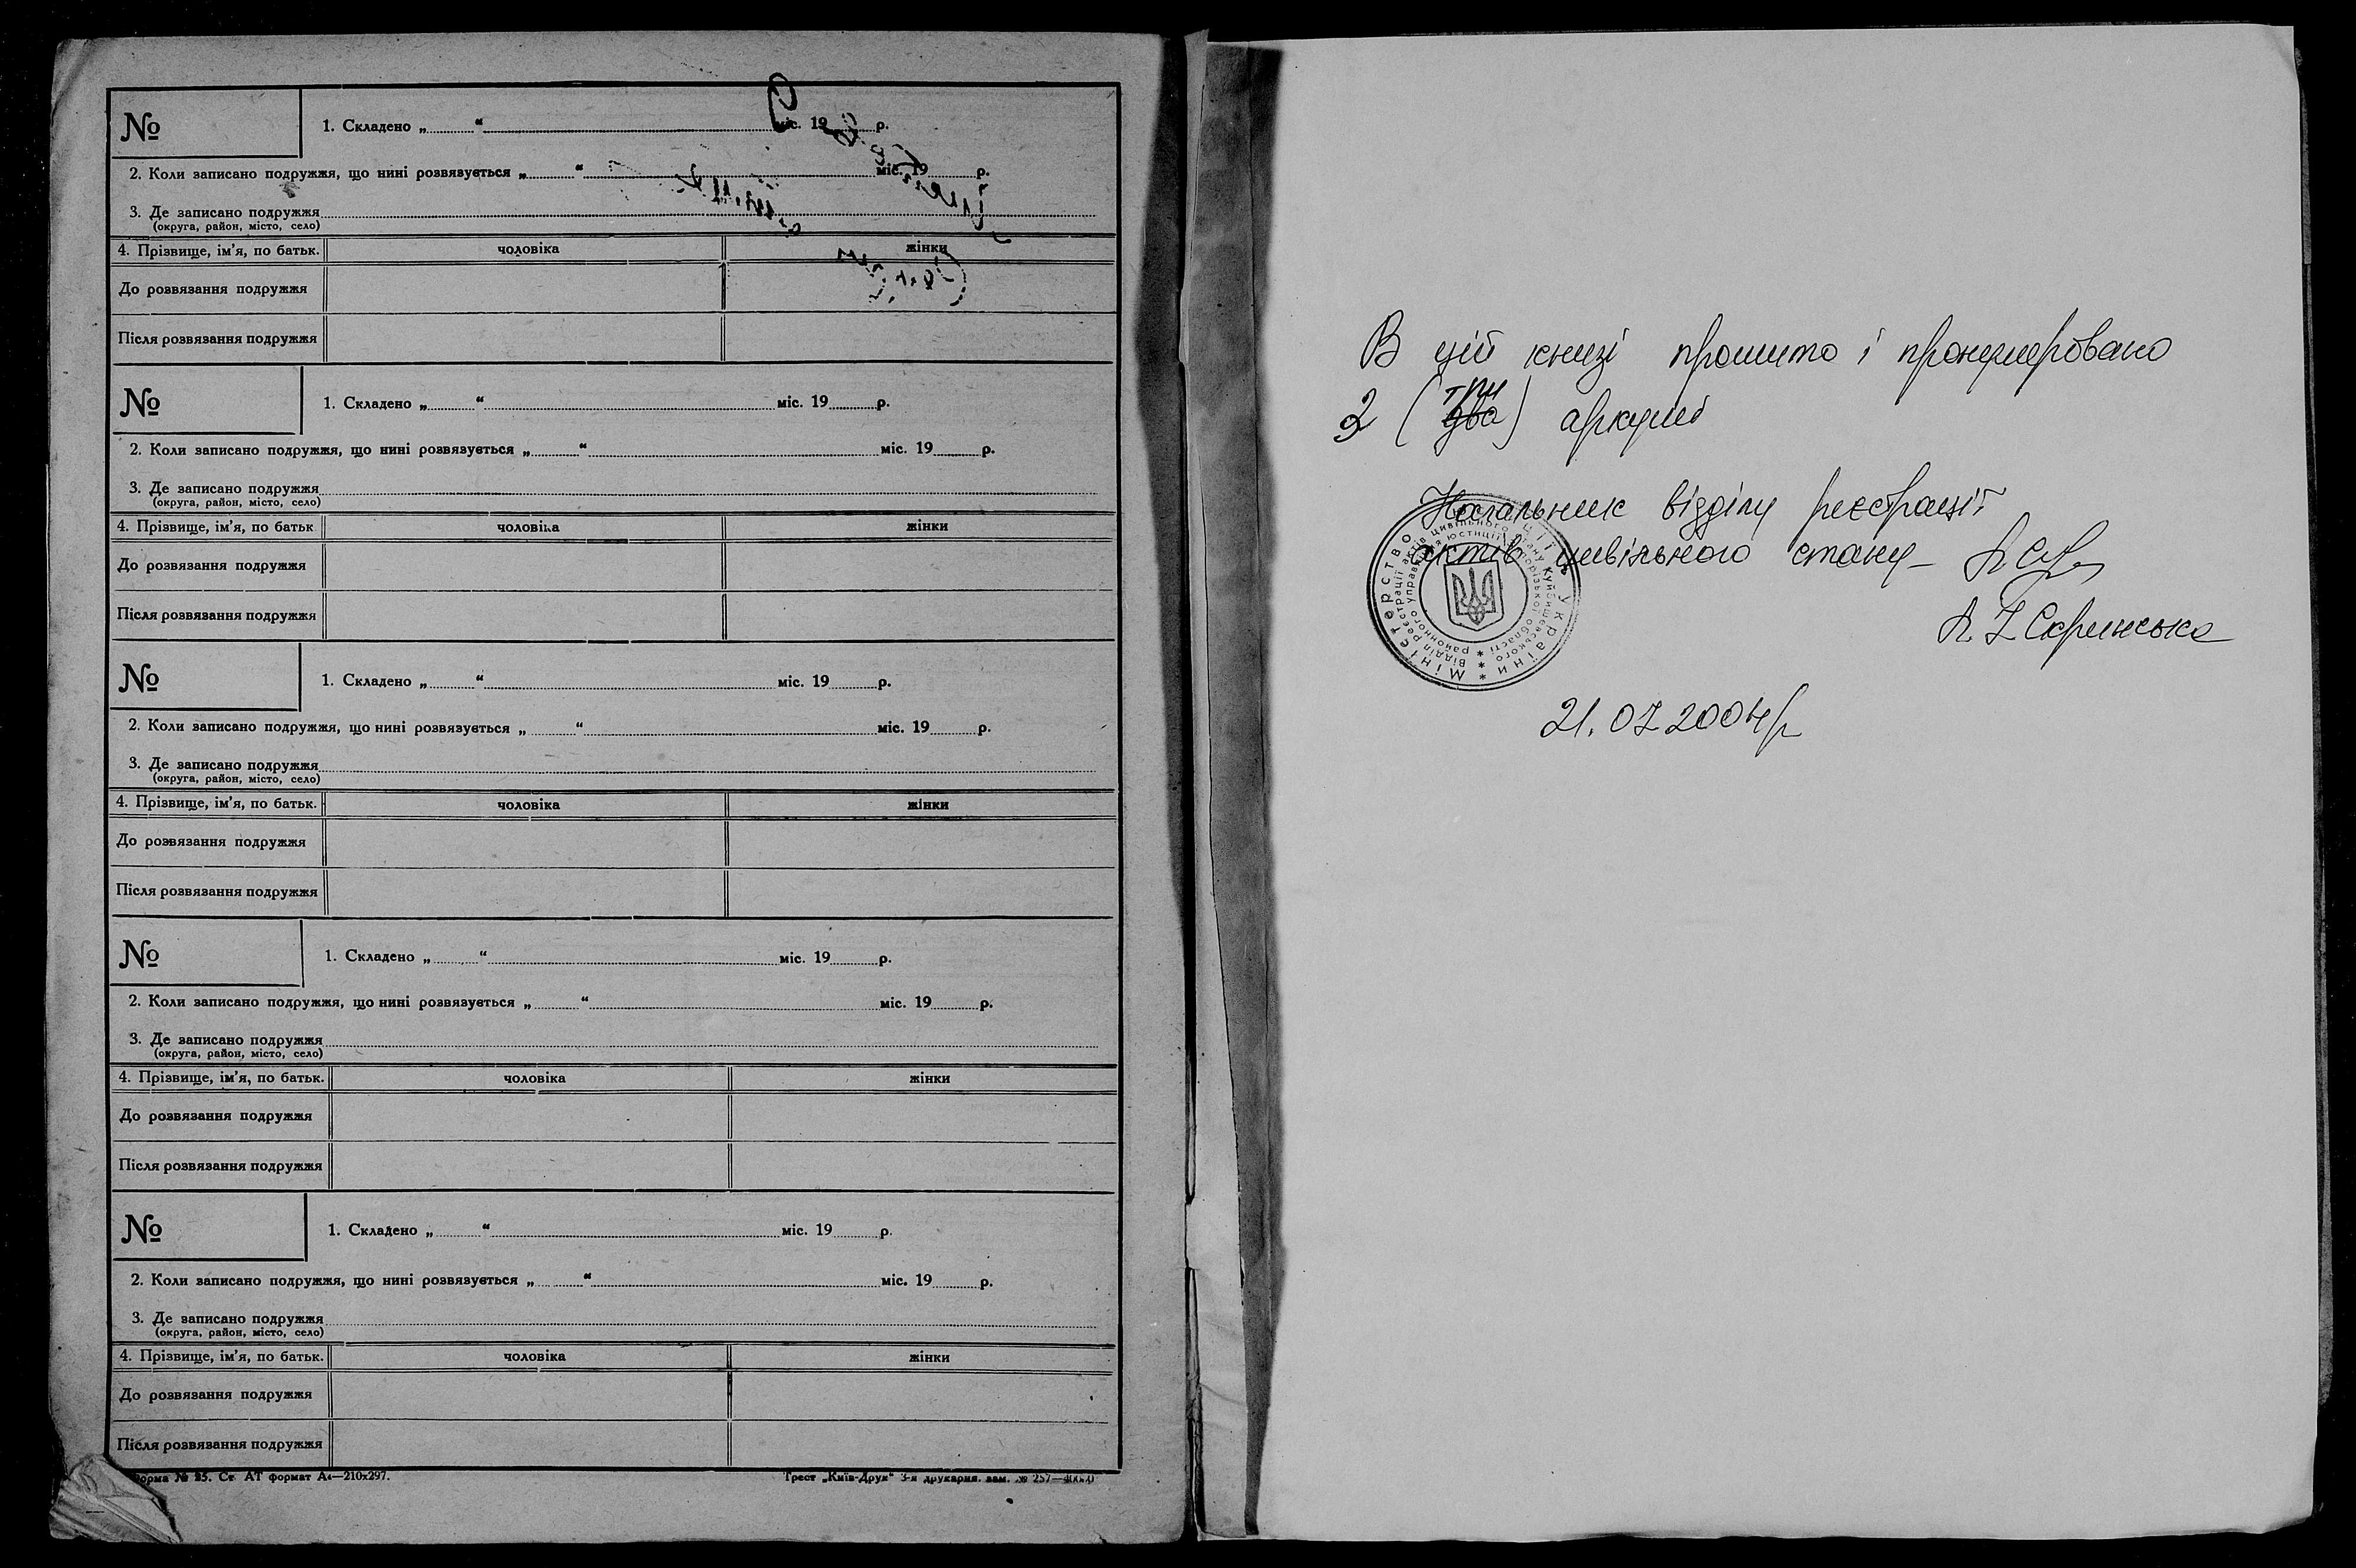 №
1. Складено „ “ міс. 19 р.
2. Коли записано подружжя, що нині розвязується „ “ міс. 19 р.
3. Де записано подружжя
(округа, район, місто, село)
4. Прізвище, ім’я, по батьк. чоловіка жінки
До розвязання подружжя
Після розвязання подружжя
№
1. Складено „ “ міс. 19 р.
2. Коли записано подружжя, що нині розвязується „ “ міс. 19 р.
3. Де записано подружжя
(округа, район, місто, село)
4. Прізвище, ім’я, по батьк чоловіка жінки
До розвязання подружжя
Після розвязання подружжя
№
1. Складено „ “ міс. 19 р.
2. Коли записано подружжя, що нині розвязується „ “ міс. 19 р.
3. Де записано подружжя
(округа, район, місто, село)
4. Прізвище, ім’я, по батьк. чоловіка жінки
До розвязання подружжя
Після розвязання подружжя
№
1. Складено „ “ міс. 19 р.
2. Коли записано подружжя, що нині розвязується „ “ міс. 19 р.
3. Де записано подружжя
(округа, район, місто, село)
4. Прізвище, ім’я, по батьк. чоловіка жінки
До розвязання подружжя
Після розвязання подружжя
№
1. Складено „ “ міс. 19 р.
2. Коли записано подружжя, що нині розвязується „ “ міс. 19 р.
3. Де записано подружжя
(округа, район, місто, село)
4. Прізвище, ім’я, по батьк. чоловіка жінки
До розвязання подружжя
Після розвязання подружжя
Форма № 25. Ст. АТ формат А4—210х297. Трест „Київ-Друк“ 3-я друкарня. зам. № 257—
В цій книзі прошито і пронумеровано
три
(два) аркуші
Начальник відділу реєстрації
актів цивільного стану
Скринська
21.07.2004р
Міністерство юстиції України
Відділ реєстрації актів цивільного стану Куйбишевського
районного управління юстиції Запорізької області